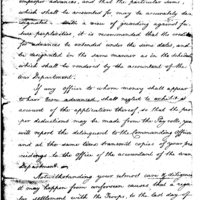 improper advances, and that the particular sums
which shall be accounted for may be accurately des-
ignated. With a view of guarding against
perplexities, it is recommended that the
for advances be extended under the same dates, and
be designated in the same manner as in the
which shall be rendered by the accountant of the
War Department.
If any officer to whom money shall appear
to have been advanced shall neglect to exhibit
account of the application thereof, so that the pro-
per deductions may be made from the Pay rolls, you
will report the delinquent to the Commanding officer
and at the same time transmit copies of your pro-
ceedings to the office of the accountant of the war
Department.
Notwithstanding your utmost care & diligence
it may happen from unforeseen causes that a regu-
lar settlement with the Troops, to the last day of